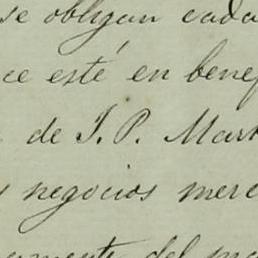 se obligan cada
ce esté en benef
de J. P. Mart
s negocios merc
amente del m